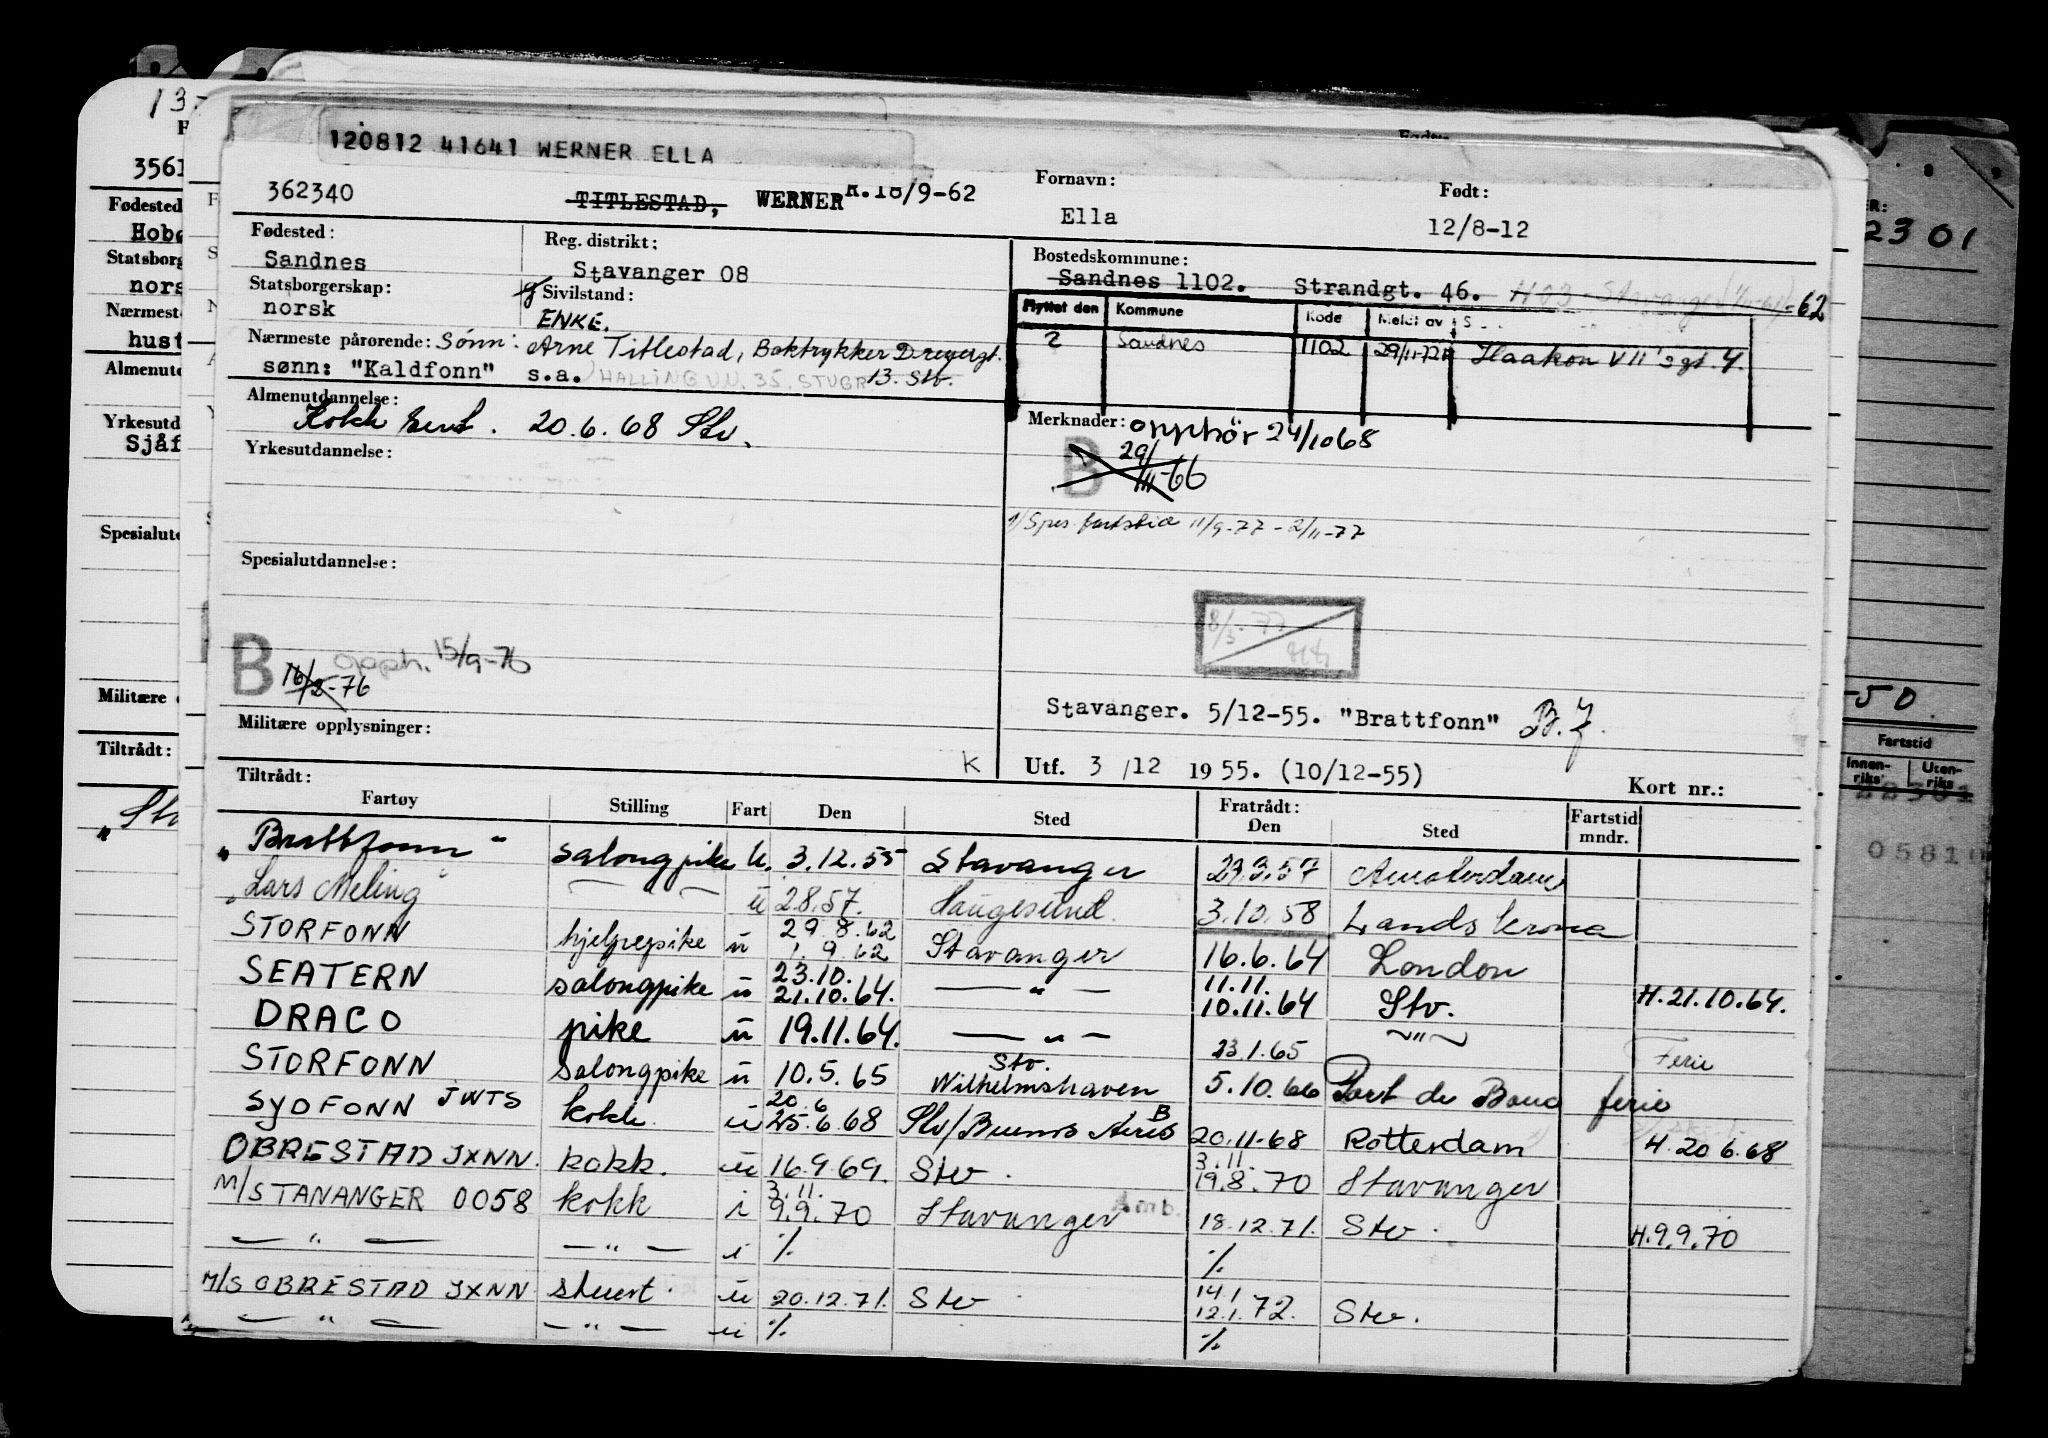 120812 41641 WERNER ELLA
362340 TITLESTAD, WERNER R.18/9-62
Fornavn: Ella
Født: 12/8-12
Fødested: Sandnes
Reg. distrikt: Stavanger 08
Bostedskommune: Sandnes 1102. Strandgt. 46.
Statsborgerskap: norsk
Sivilstand: ENKE.
Flyttet den Kommune Kode Meldt av
2 Sandnes 1102 29/11-72 Haakon VII's gt. 4.
Nærmeste pårørende: Sønn: Arne Titlestad, Boktrykker Dreyergt.
sønn: "Kaldfonn" s.a. HALLING VN. 35, STVGR 13. Stv.
Almenutdannelse:
Kokk sert. 20.6.68 Stv.
Merknader: opphör 24/10 68
B 29/III-66
Yrkesutdannelse:
1/ Spes. fartstid 11/9-77 - 2/11-77
Spesialutdannelse:
18/3-77
B 16/2-76 opph. 15/9-76
Stavanger. 5/12-55. "Brattfonn" B.J.
Militære opplysninger:
K Utf. 3/12 1955. (10/12-55)
Kort nr.:
Tiltrådt:
Fartøy Stilling Fart Den Sted Fratrådt: Den Sted Fartstid mndr.
"Brattfonn" salongpike u. 3.12.55 Stavanger 23.3.57 Amsterdam
"Lars Meling" — — u 2.8.57. Haugesund. 3.10.58 Landskrona
STORFONN hjelpepike u 29.8.62 1.9.62 Stavanger 16.6.64 London
SEATERN salongpike u 23.10. 21.10.64. — " — 11.11. 10.11.64 Stv. H.21.10.64.
DRACO pike u 19.11.64. — " — 23.1.65 — " — Ferie
STORFONN salongpike u 10.5.65 Stv. Wilhelmshaven 5.10.66 Port de Bouc ferie
SYDFONN JWTS kokk u 20.6 25.6.68 Stv/Buenos Aires B 20.11-68 Rotterdam H. 20.6.68
OBRESTAD JXNN. kokk. u 16.9.69. Stv. 3.11. 19.8.70 Stavanger
M/S TANANGER 0058 kokk i 3.11. 9.9.70 Stavanger Amb. 18.12.71. Stv. H.9.9.70
— " — — " — i % %
M/S OBRESTAD JXNN stuert. u 20.12.71. Stv 14.1 12.1.72. Stv.
— " — — " — u % %
3561
Fødested
Statsborg
nors
Nærmest
hust
Almenutd
Yrkesutd
Sjåf
Spesialutd
Militære
Tiltrådt:
2301
-50
Fartstid
Innen-riks Uten-riks